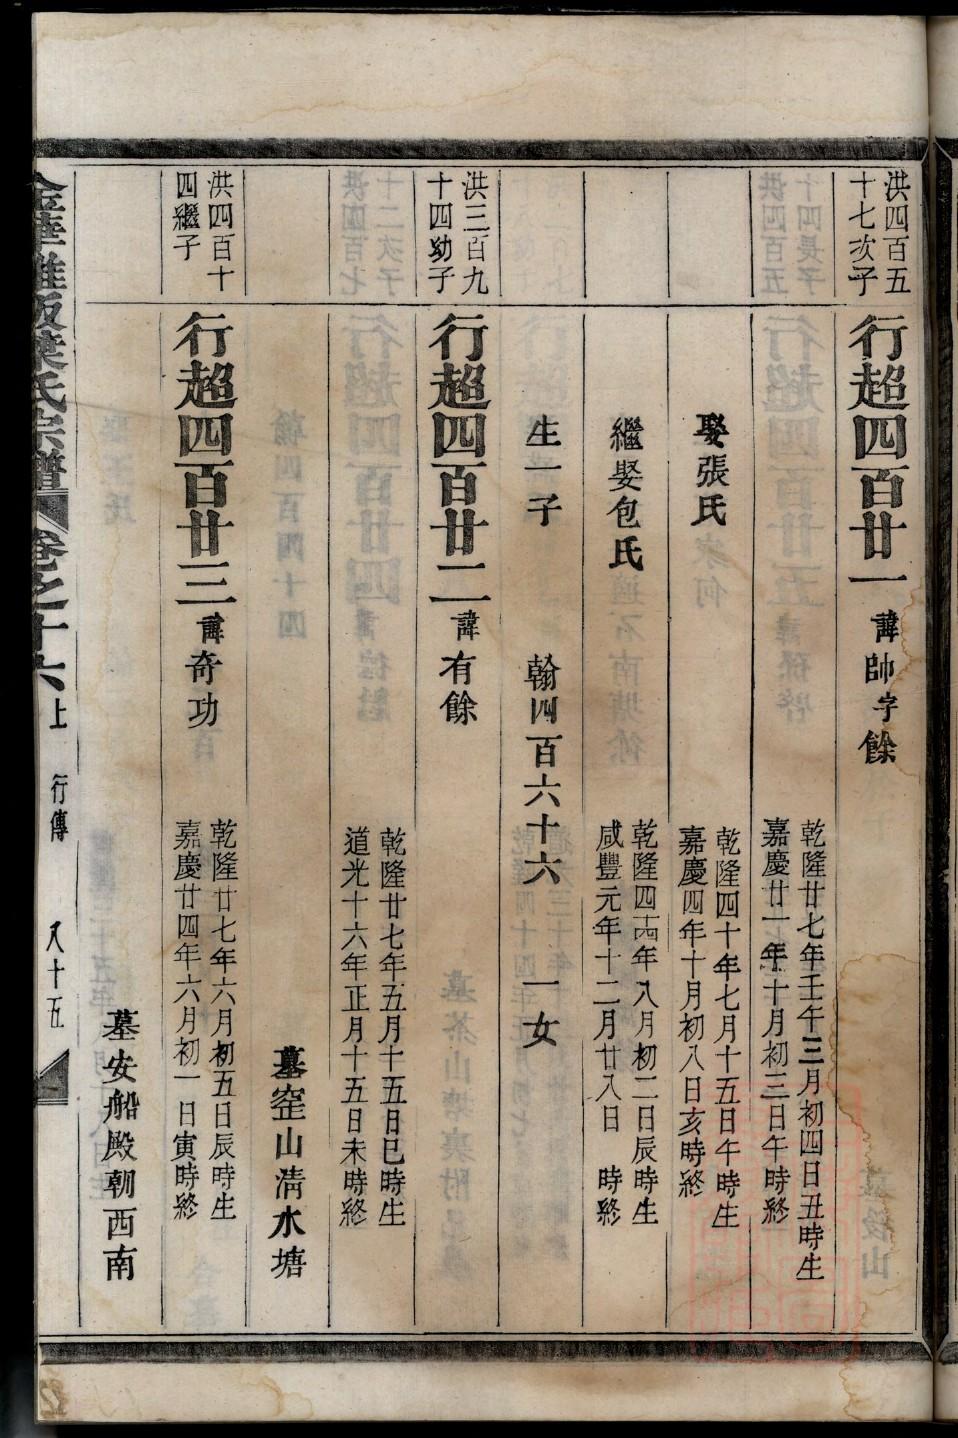 洪四百五
十七次子
行超四百廿一
諱帥字餘
乾隆廿七年壬午三月初四日丑時生
嘉慶廿一年十月初三日午時終
娶張氏
乾隆四十年七月十五日午時生
嘉慶四年十月初八日亥時終
繼娶包氏
乾隆四十四年八月初二日辰時生
咸豐元年十二月廿八日 時終
生一子 翰四百六十六 一女
洪三百九
十四幼子
行超四百廿二
諱有餘
乾隆廿七年五月十五日巳時生
道光十六年正月十五日未時終
墓窐山清水塘
洪四百十
四繼子
行超四百廿三
諱奇功
乾隆廿七年六月初五日辰時生
嘉慶廿四年六月初一日寅時終
墓安船殿朝西南
葉氏宗譜 卷之十六上 行傳 八十五